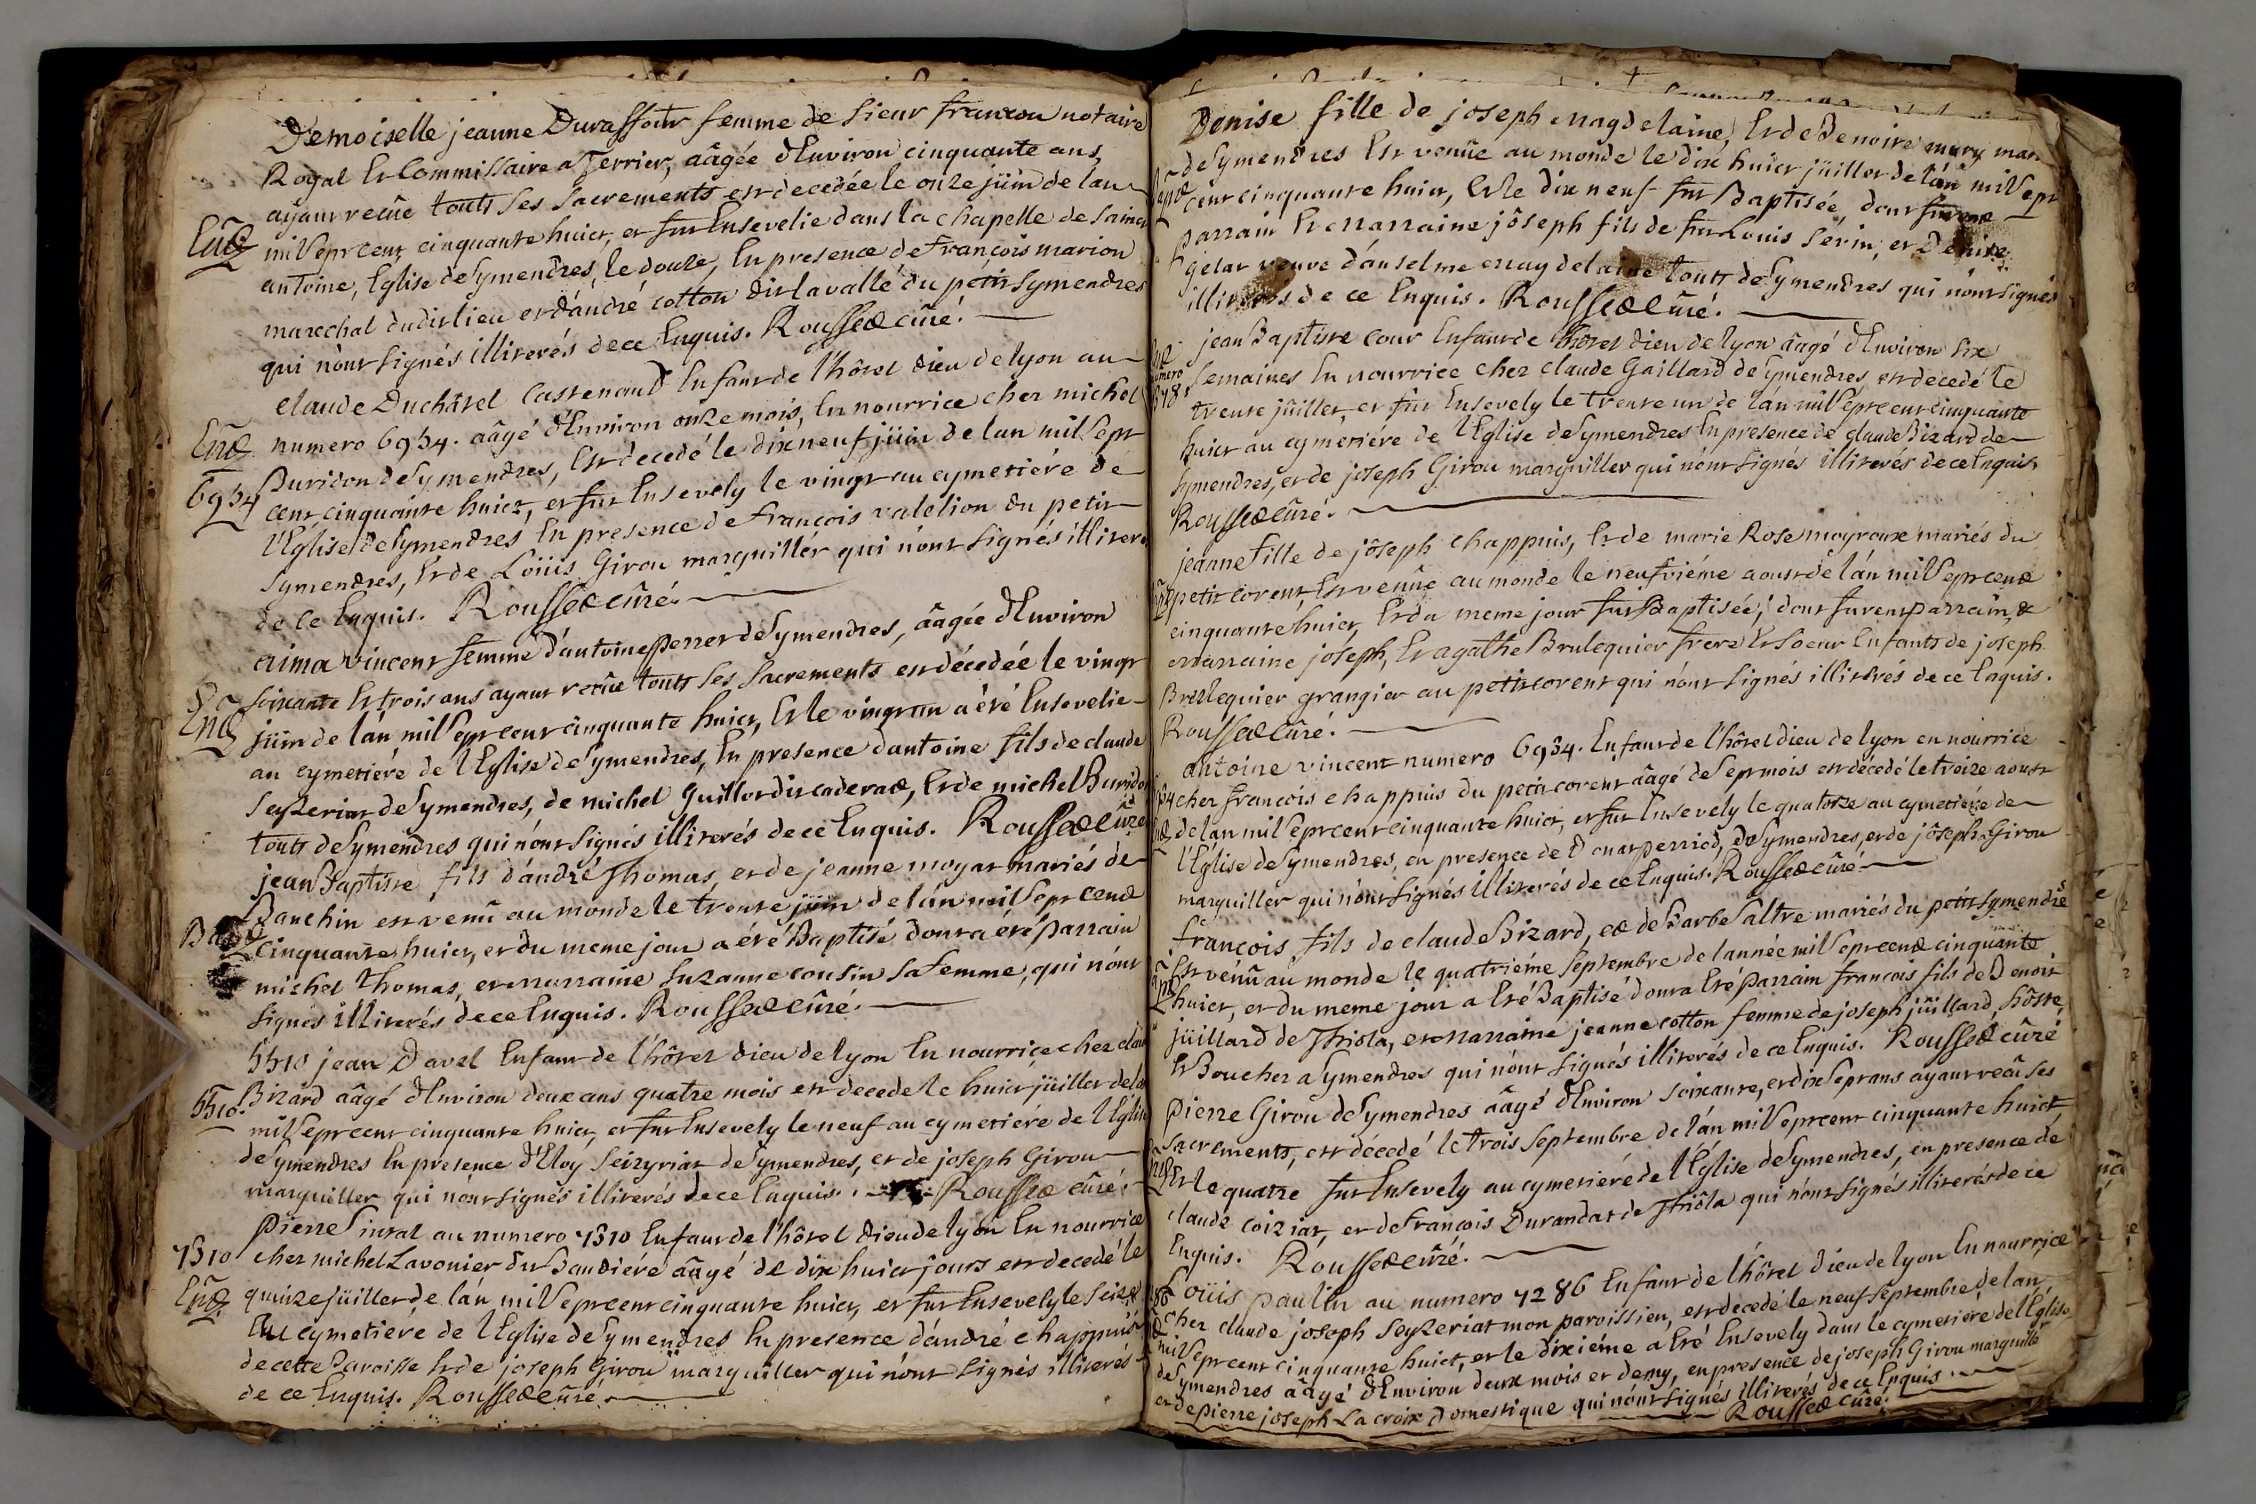 Demoiselle jeanne Durassour femme de Sieur francou notaire
Royal Et Commissaire a Terrier, aâgée d'Environ cinquante ans,
ayant recüe touts ses sacrements est decedée le onze jüin de lan
mil sept cent cinquante huict, et fut Ensevelie dans la chapelle de sainct
antoine, Eglise de Symendres, le douze, En presence de François marion
marechal dudit lieu et d'andré cotton dit lavallé du petit Symendres
qui n'ont signés illiterés de ce Enquis. Roussed cûré.
claude Duchâtel Castenaud Enfant de l'hôtel dieu de lyon au
Ené numero 6934. aâgé d'Environ onze mois, En nourrice chez michel
6934 Buridon de Symendres, Est decedé le dix neuf jüin de lan mil sept
cent cinquante huict, et fut Ensevely le vingt au cymetiére de
l'Églisé de Symendres En presence de François valelion du petit
Symendres, Et de Loüis Girou marguillér qui n'ont signés illiteré
de ce Enquis. Roussed cûré.
aima vincent femme d'antoine perret de Symendres, aâgée d'Environ
soixante Et trois ans ayant recüe touts ses sacrements est décedée le vingt
jüin de l'an mil sept cent cinquante huict, Et le vingt un a été Ensevelie
au cymetiére de l'Eglise de Symendres, En presence d'antoine fils de claude
Seyzeriat de Symendres, de michel Guillot dit caderad, Et de michel Burido
touts de Symendres qui n'ont signés illiterés de ce Enquis. Roussed cûré
jean Baptiste fils d'andré Thomas, et de jeanne moyat mariés de
Banchin est venû au monde le trente jüin de l'an mil sept cend
cinquante huict, et du meme jour a été Baptisé dont a été parrain
michel Thomas, et marraine suzanne cousin sa femme, qui n'ont
signés illiterés de ce Enquis. Roussed cûré.
5510 jean Davel Enfant de l'hôtel dieu de lyon En nourrice chez clau
5510. Bizard aâgé d'Environ deux ans quatre mois est decedé le huict jüillet de l'an
mil sept cent cinquante huict, et fut Ensevely le neuf au cymetiére de l'Eglise
de Symendres En presence d'Eloy Seizyriat de Symendres, et de joseph Girou
marguiller qui n'ont signés illiterés de ce Enquis. Roussed cûré.
pierre au numero 7310 Enfant de l'hôtel dieu de lyon En nourrice
7310 chez michel Lavonier du Baudiéré aâgé de dix huict jours est decedé le
Ené quinze jüillet de l'an mil sept cent cinquante huict, et fut Ensevely le seize
au cymetiére de l'Eglise de Symendres En presence d'andré chappuis
de cette Paroisse Et de joseph Girou marguiller qui n'ont signés illiterés
de ce Enquis. Roussed cûré.
Denise fille de joseph magdelaine, Et de Benoite mury mari
de Symendres Est venüe au monde le dix huict jüillet de l'an mil sept
cent cinquante huict, Et le dix neuf fut Baptisée, dont furent
parrain Et marraine jôseph fils de fut Louis Sérin, et Denise
gelat veuve d'anselme magdelaine touts de Symendres qui n'ont signés
illiterés de ce Enquis. Roussed Cûré.
jean Baptiste cour Enfant de l'hôtel dieu de lyon aâgé d'Environ six
semaines En nourrice chez claude Gaillard de Symendres est decedé le
trente jüillet et fut Ensevely le trente un de l'an mil sept cent cinquante
huict au cymétiére de l'Eglise de Symendres En presence de claude Bizard de
Symendres, et de joseph Girou marguiller qui n'ont signés illiterés de ce Enquis
Roussed cûré.
jeanne fille de jôseph chappuis, Et de marie Rose moyroux mariés du
petit corent Est venüe au monde le neufviéme aoust de l'an mil sept cend
cinquante huict, Et du meme jour fut Baptisée, dont furent parrain, &
marraine joseph, Et agathe Brulequier frere Et soeur Enfants de joseph
Brulequier grangier au petit corent qui n'ont signés illiterés de ce Enquis.
Roussed Cûré.
antoine vincent numero 6934. Enfant de l'hôtel dieu de lyon en nourrice
chez François chappuis du petit corent aâgé de sept mois est décedé le treize aoust
de l'an mil sept cent cinquante huict, et fut Ensevely le quatorze au cymetiére de
l'Eglise de Symendres, en presence de Donat perriod, de Symendres, et de jôseph Girou
marguiller qui n'ont signés illiterés de ce Enquis. Roussed cûré.
françois fils de claude Bizard, et de Barbe Saltre mariés du petit Symendres
Est venû au monde le quatriéme septembre de lannée mil sept cend cinquante
huict, et du meme jour a Eté Baptisé dont a Eté parrain françois fils de Denoit
jüillard de Thiola, et marraine jeanne cotton femme de joseph jüillard, hôste,
Et Boucher a Symendres qui n'ont signés illiterés de ce Enquis. Roussed cûré
pierre Girou de Symendres aâgé d'Environ soixante, et dix sept ans ayant recû ses
sacrements, est décedé le trois septembre de l'an mil sept cent cinquante huict,
Et le quatre fut Ensevely au cymetiére de l'Église de Symendres, en presence de
claude coiziat, et de François Durandat de Thiôla qui n'ont signés illiterés de ce
Enquis. Roussed cûré.
Loüis paulin au numero 7286 Enfant de l'hôtel dieu de lyon En nourrice
chez claude joseph Seyzeriat mon paroissien, est decedé le neuf septembre, de lan
mil sept cent cinquante huict, et le dixiéme a Eté Ensevely dans le cymetiere de l'Eglise
de Symendres aâgé d'Environ deux mois et demy, en presence de joseph Girou marguillé
et de pierre joseph La croix domestique qui n'ont signés illiterés de ce Enquis
Roussed cûré.